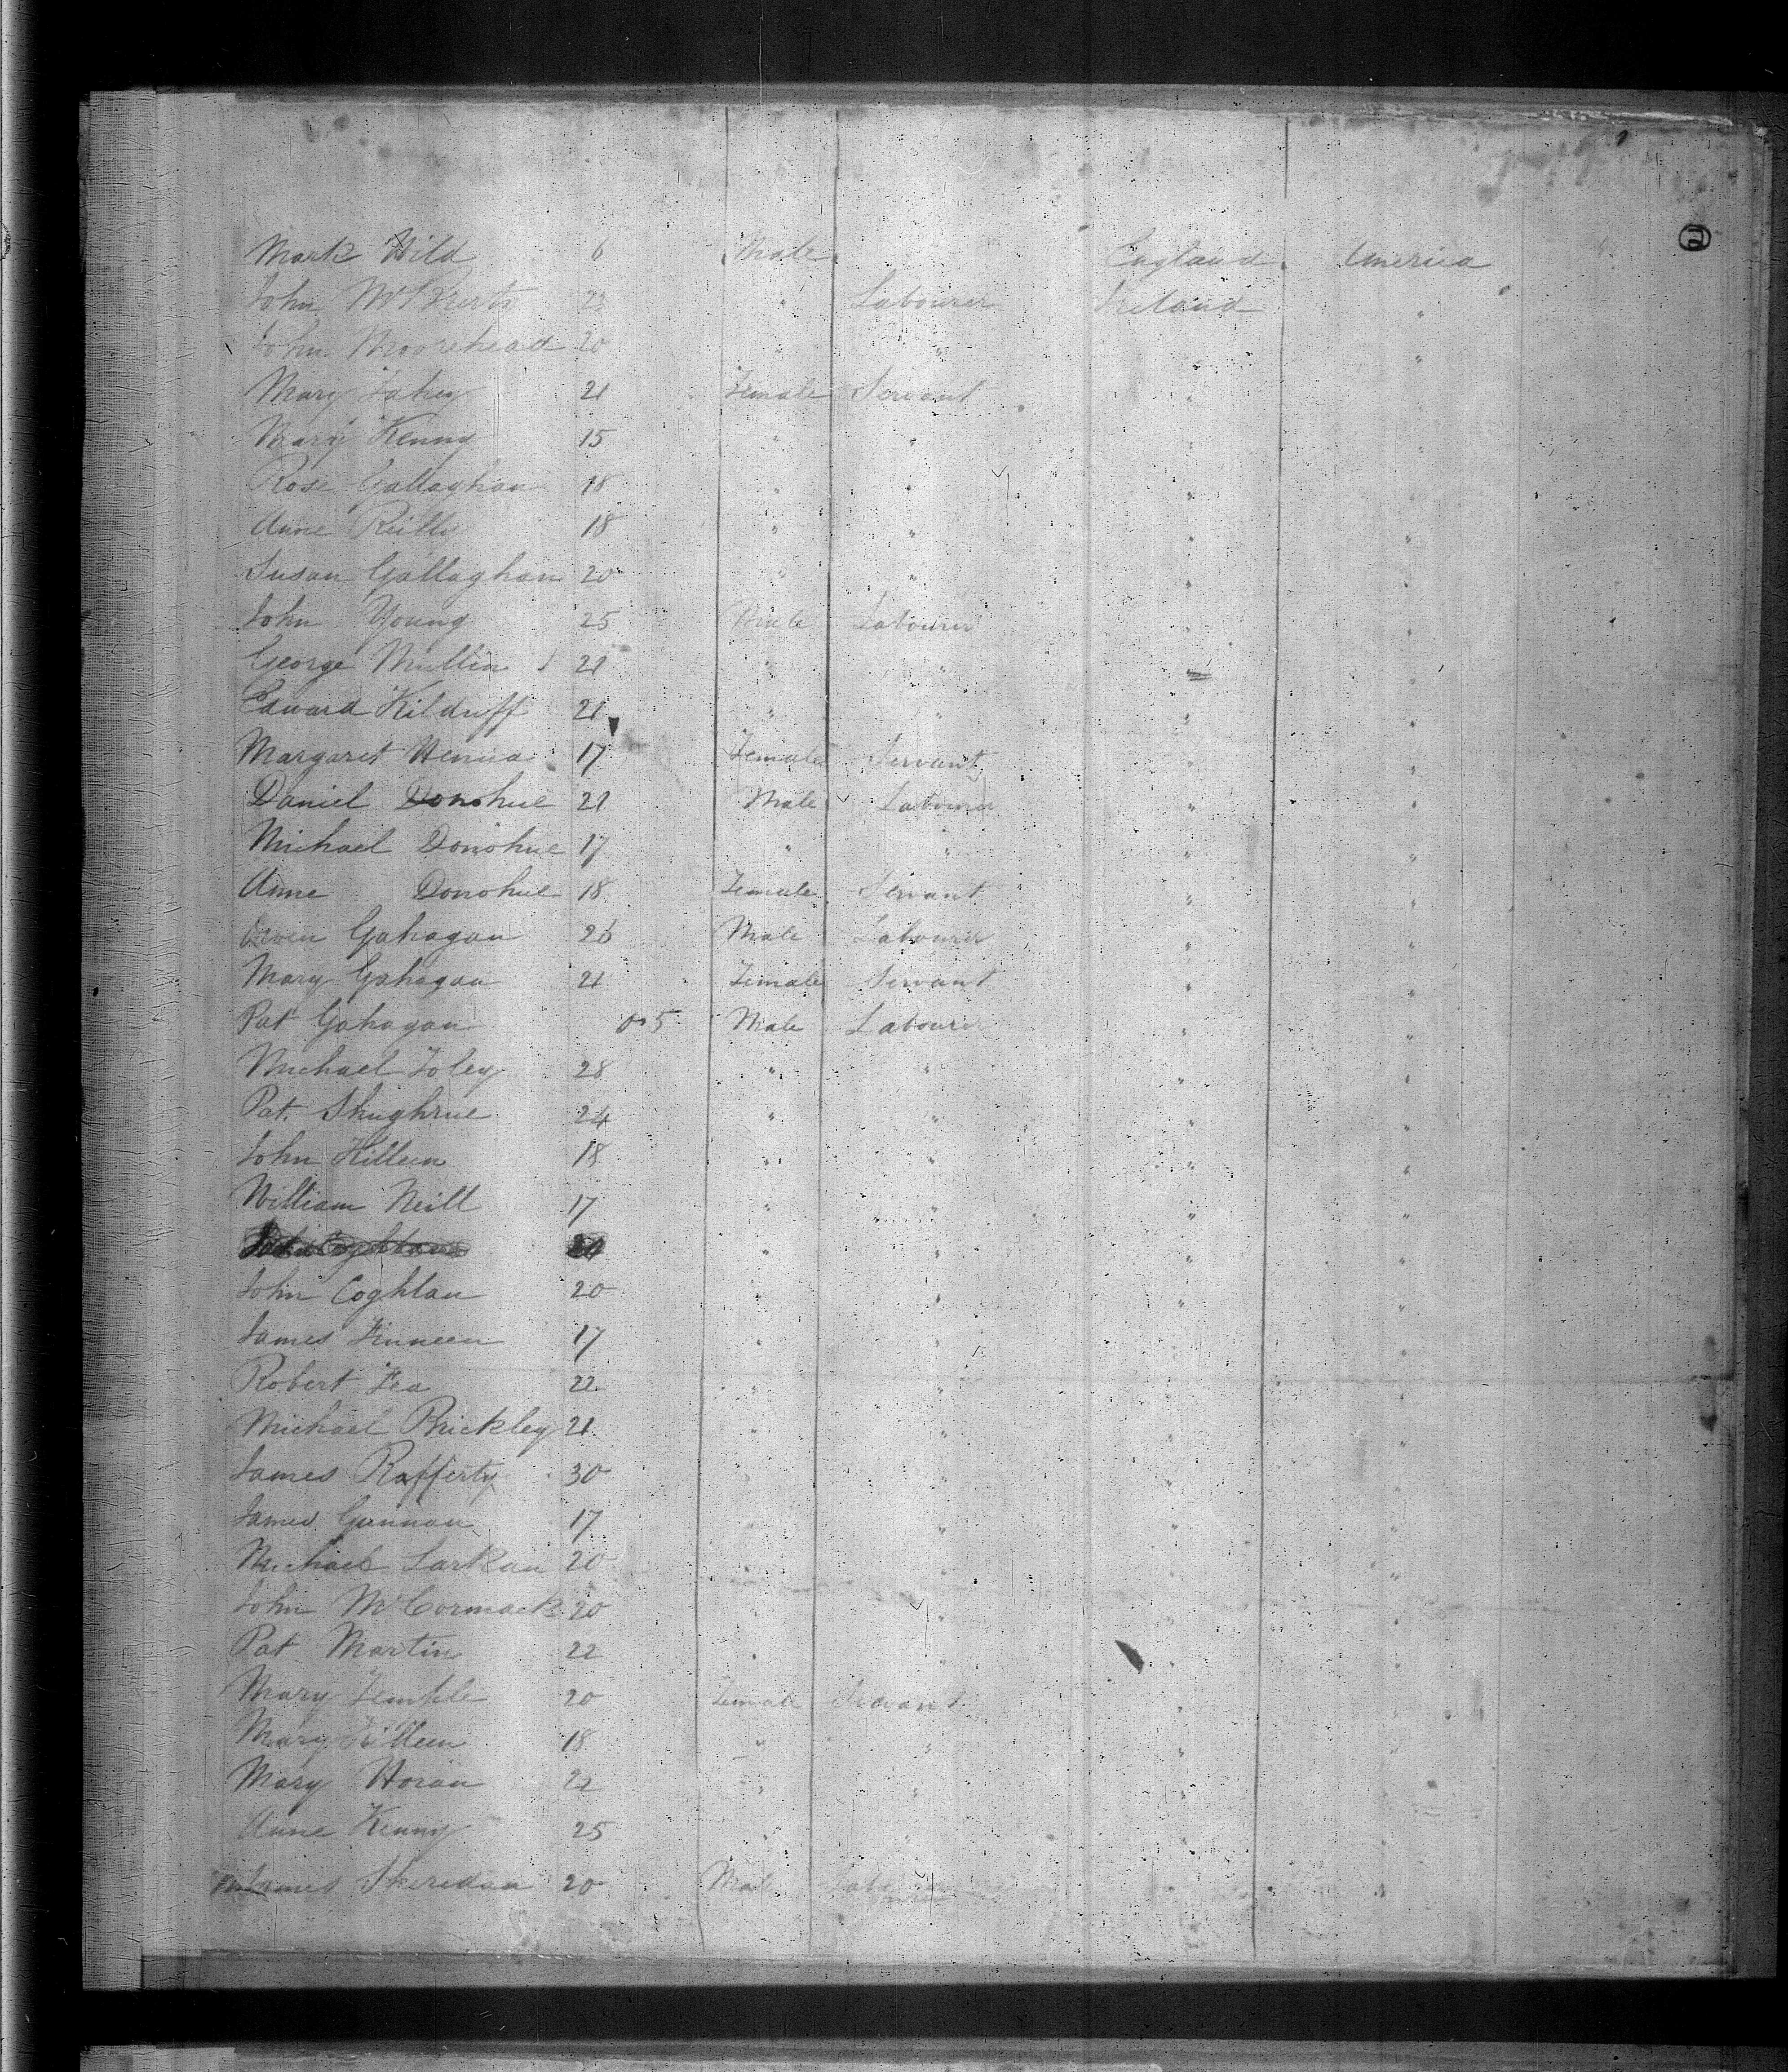 Mark Wild 6 Male England America
John 22 " Labourer Ireland "
John Moorehead 20 " " " "
Mary Fahey 21 Female Servant " "
Mary Kenny 15 " " " "
Rose Gallaghan 18 " " " "
Anne Reilly 18 " " " "
Susan Gallaghan 20 " " " "
John Young 25 Male Labourer " "
George Mullin 21 " " " "
Edward Kilduff 21 " " " "
Margaret 17 Female Servant " "
Daniel Donohue 21 Male Labourer " "
Michael Donohue 17 " " " "
Anne Donohue 18 Female Servant " "
Owen Gahagan 26 Male Labourer " "
Mary Gahagan 21 Female Servant " "
Pat Gahagan 5 Male Labourer " "
Michael Foley 28 " " " "
Pat. Shughrue 24 " " " "
John Killeen 18 " " " "
William Neill 17 " " " "
" " " "
John Coghlan 20 " " " "
James Finneen 17 " " " "
Robert Fea 22 " " " "
Michael Brickley 21 " " " "
James Rafferty 30 " " " "
James Gunnan 17 " " " "
Michael Larkan 20 " " " "
John McCormack 20 " " " "
Pat Martin 22 " " " "
Mary Temple 20 Female Servant " "
Mary Killeen 18 " " " "
Mary Horan 22 " " " "
Anne Kenny 25 " " " "
James Sheridan 20 Male Labourer " "